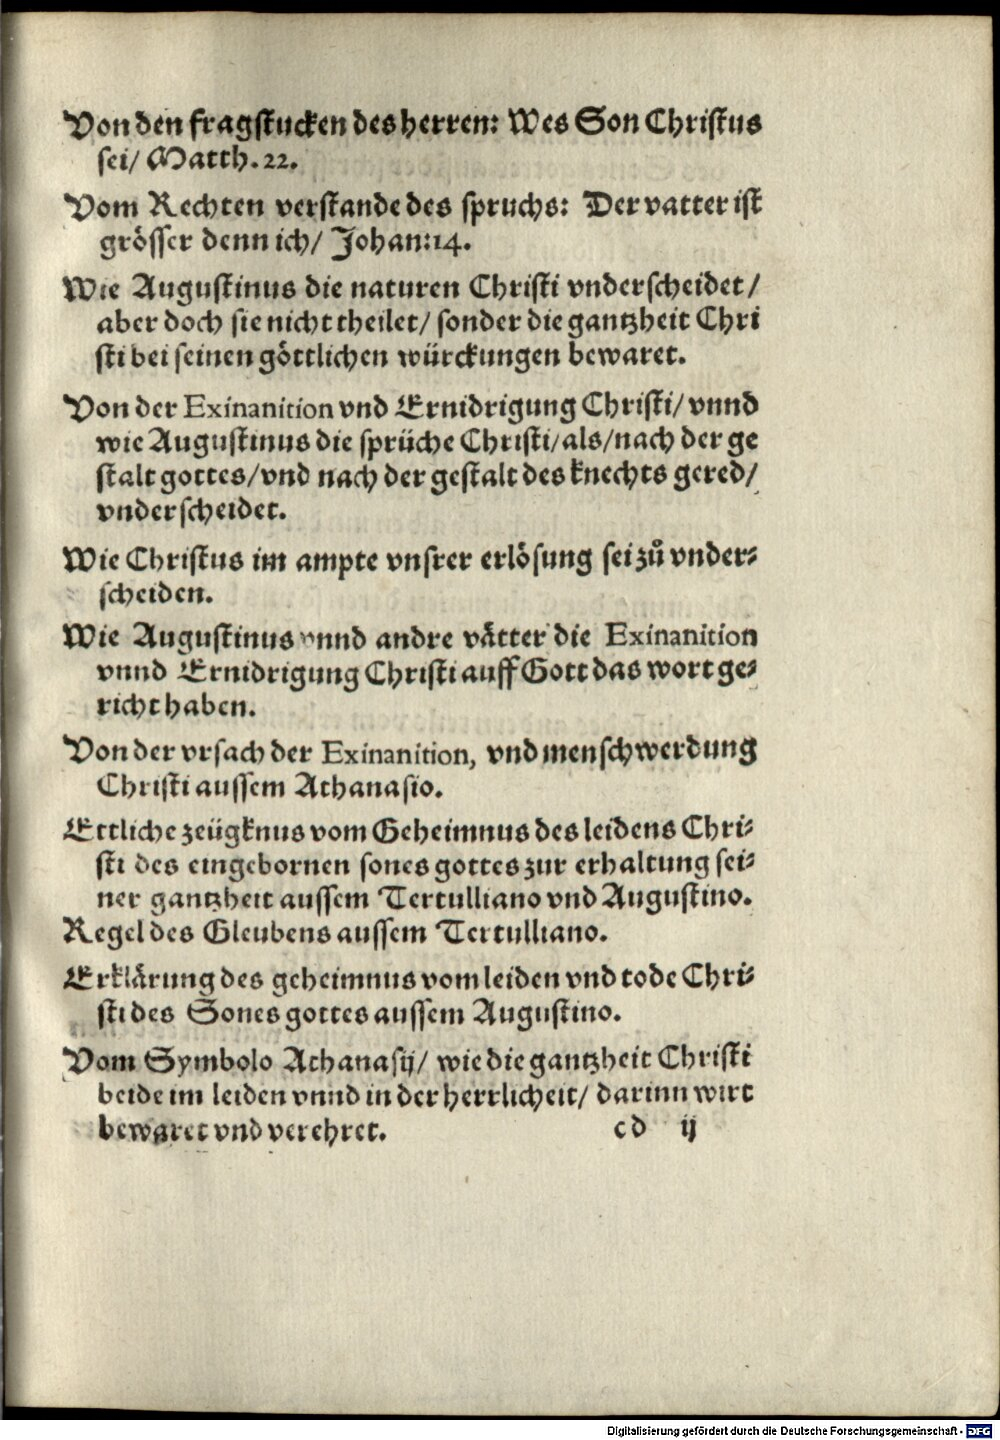 Von den fragstucken des herren: Wes Son Christus
sei/ Matth. 22.
Vom Rechten verstande des spruchs: Der vatter ist
grösser denn ich/ Johan: 14.
Wie Augustinus die naturen Christi vnderscheidet/
aber doch sie nicht theilet/ sonder die gantzheit Chri
sti bei seinen göttlichen würckungen bewaret.
Von der Exinanition vnd Ernidrigung Christi/ vnnd
wie Augustinus die sprüche Christi/ als/ nach der ge
stalt gottes/ vnd nach der gestalt des knechts gered/
vnderscheidet.
Wie Christus im ampte vnsrer erlösung sei zů vnder⸗
scheiden.
Wie Augustinus vnnd andre vätter die Exinanition
vnnd Ernidrigung Christi auff Gott das wort ge⸗
richt haben.
Von der vrsach der Exinanition, vnd menschwerdung
Christi aussem Athanasio.
Ettliche zeügknus vom Geheimnus des leidens Chri⸗
sti des eingebornen sones gottes zur erhaltung sei⸗
ner gantzheit aussem Tertulliano vnd Augustino.
Regel des Gleubens aussem Tertulliano.
Erklärung des geheimnus vom leiden vnd tode Chri⸗
sti des Sones gottes aussem Augustino.
Vom Symbolo Athanasij/ wie die gantzheit Christi
beide im leiden vnnd in der herrlicheit/ darinn wirt
bewaret vnd verehret. cd ij
Digitalisierung gefördert durch die Deutsche Forschungsgemeinschaft - DFG